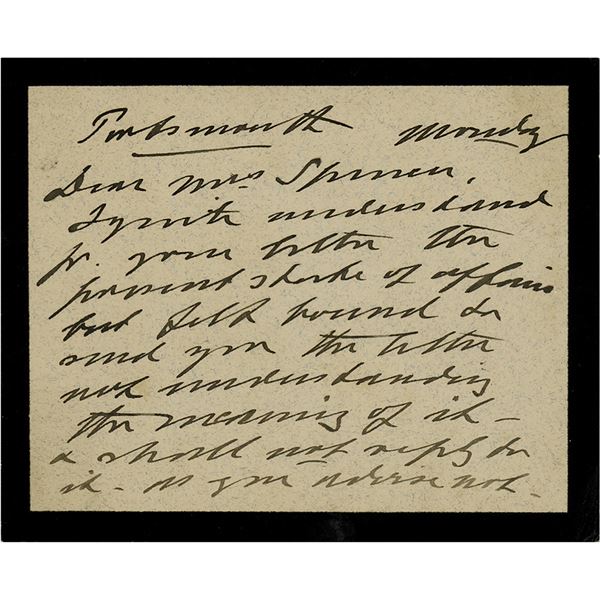 Portsmouth Monday
Dear Mrs Spencer,
I quite understand
fr. your letter the
present state of affairs
but felt bound to
send you the letter
not understanding
the meaning of it -
& shall not reply to
it - as you advise not -